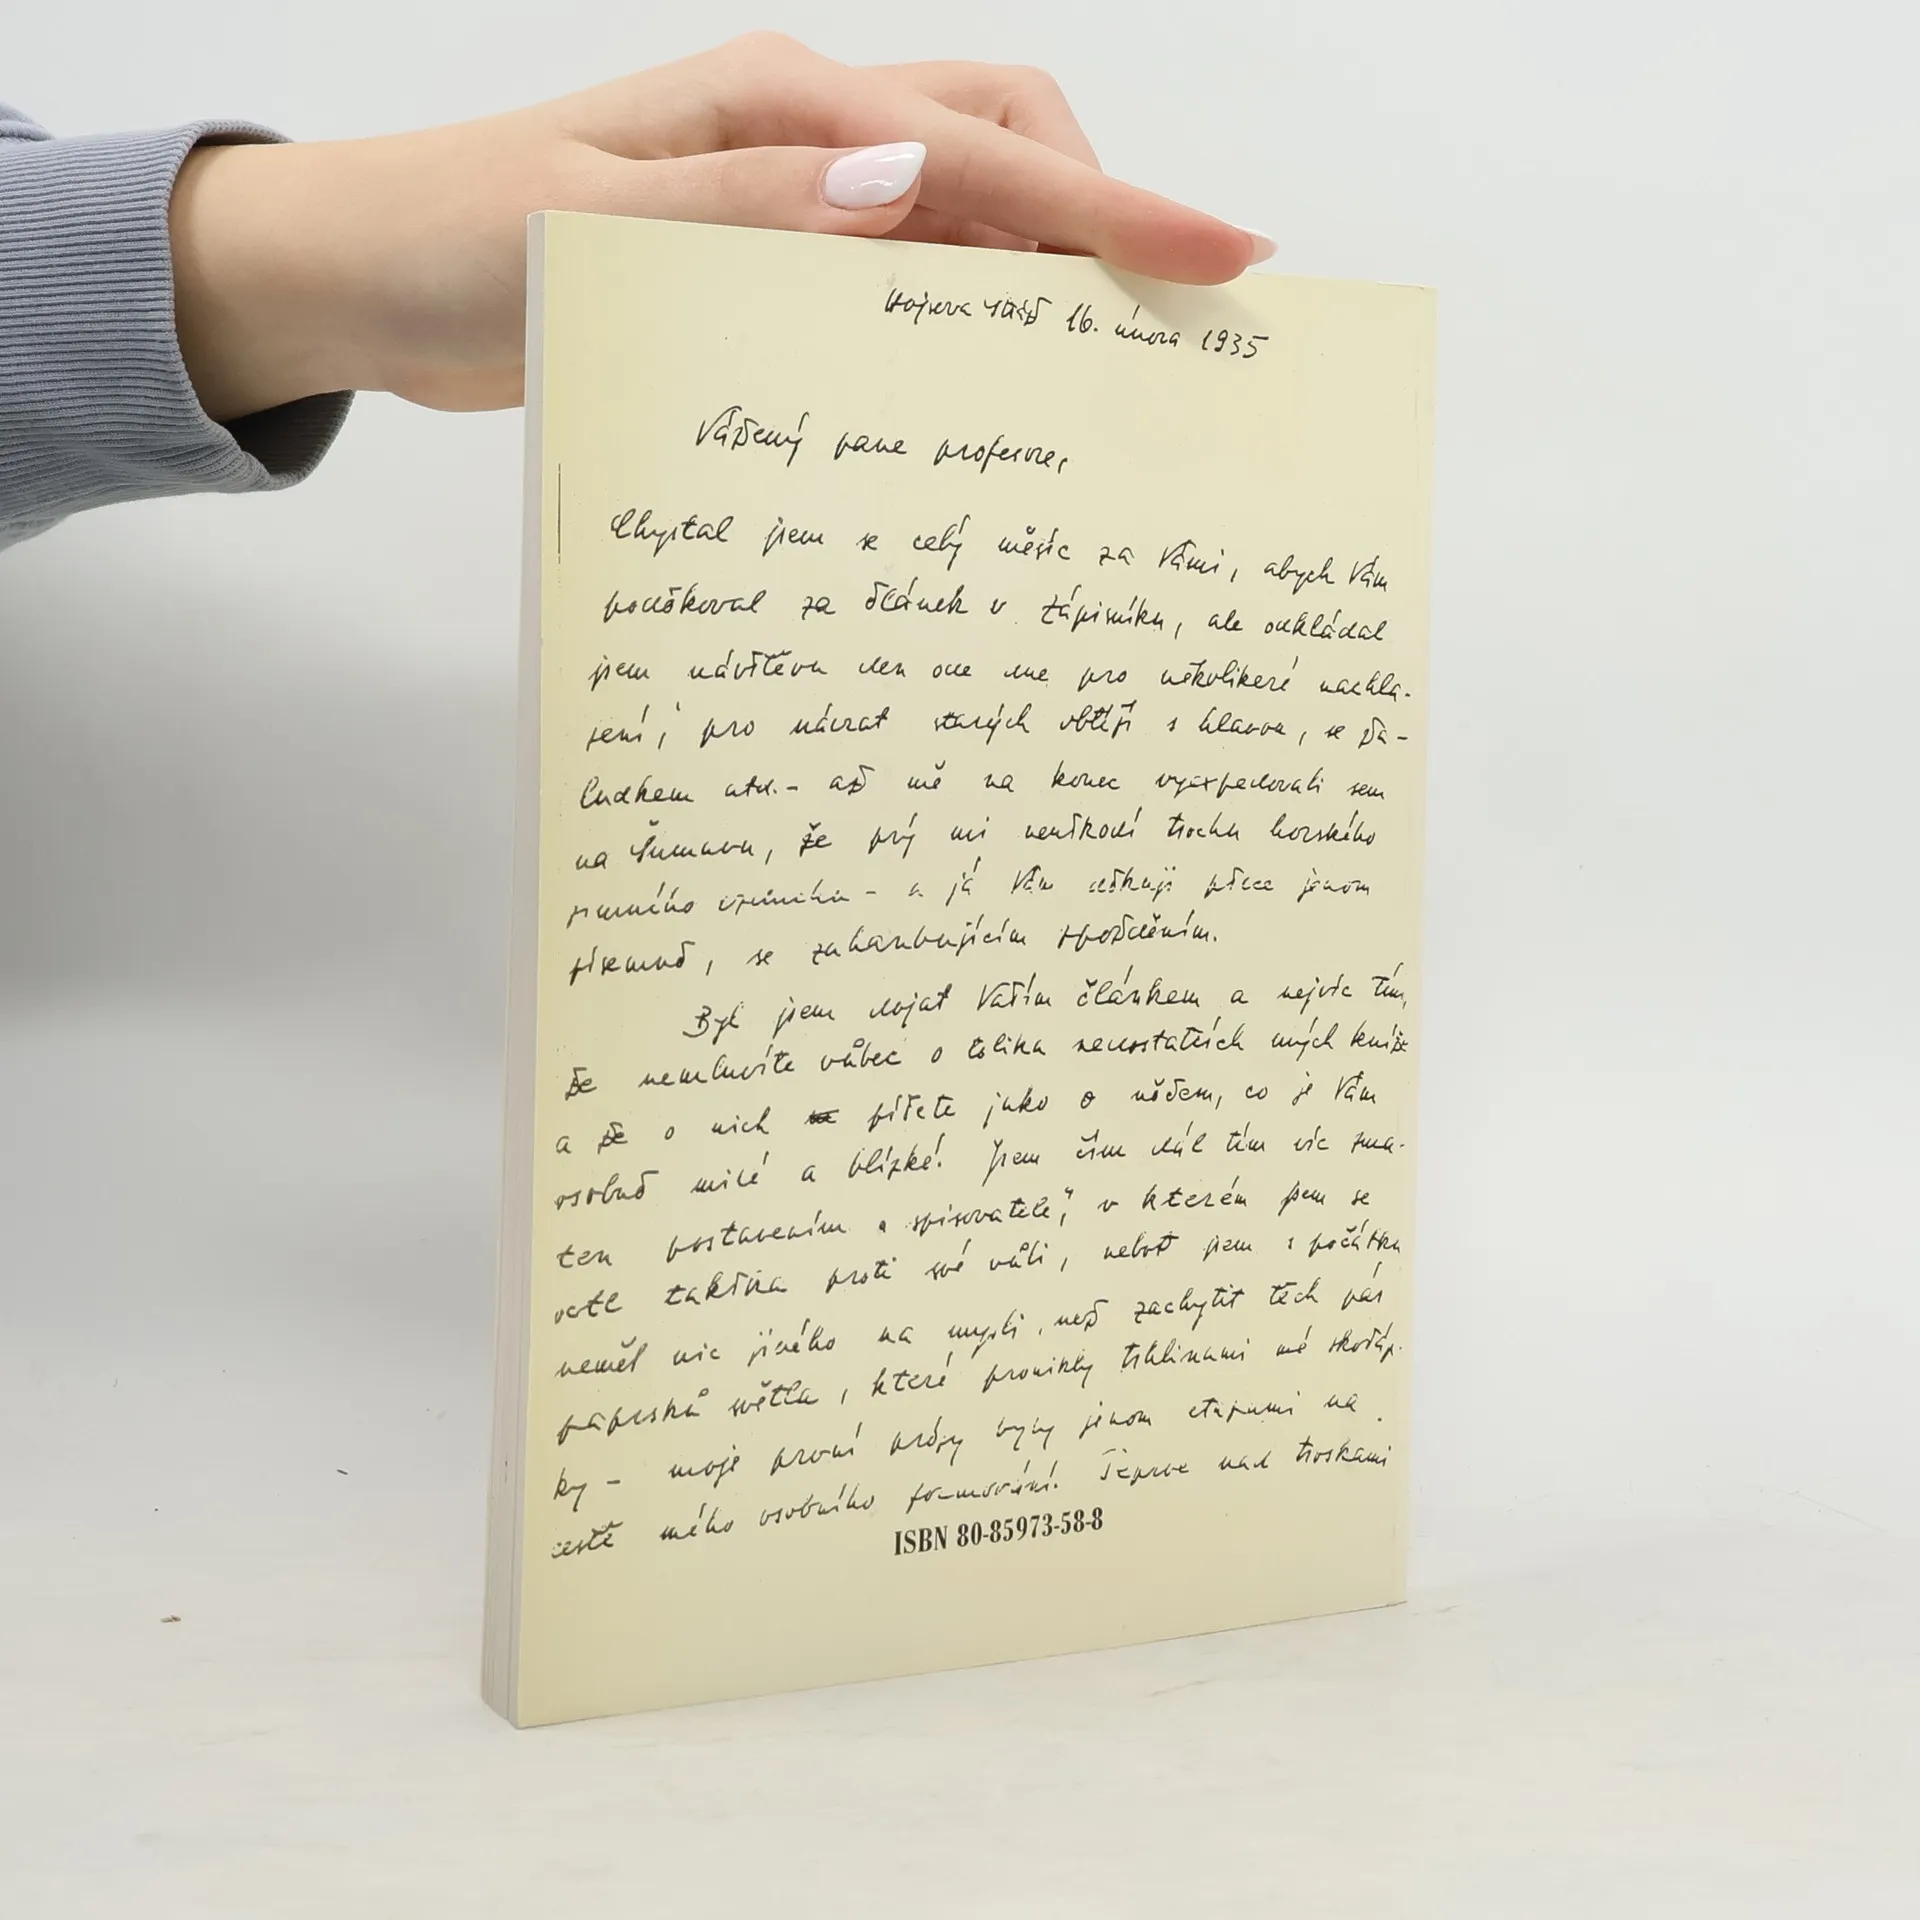 Hojsova Stráž 16. února 1935
Vážený pane profesore,
Chystal jsem se celý měsíc za Vámi, abych Vám
poděkoval za článek v Zápisníku, ale odkládal
jsem návštěvu den ode dne pro několikeré nachla-
zení, pro návrat starých obtíží s hlavou, se ža-
ludkem atd. - až mě na konec vyexpedovali sem
na Šumavu, že prý mi neuškodí trochu horského
zimního vzduchu - a já Vám děkuji přece jenom
písemně, se zahanbujícím zpožděním.
Byl jsem dojat Vaším článkem a nejvíc tím,
že nemluvíte vůbec o tolika nedostatcích mých kníže
a že o nich píšete jako o něčem, co je Vám
osobně milé a blízké! Jsem čím dál tím víc zma-
ten postavením „spisovatele", v kterém jsem se
octl takřka proti své vůli, neboť jsem s počátku
neměl nic jiného na mysli, než zachytit těch pár
paprsků světla, které pronikly trhlinami mé skořáp-
ky - moje první prózy byly jenom etapami na
cestě mého osobního formování. Teprve nad troskami
ISBN 80-85973-58-8